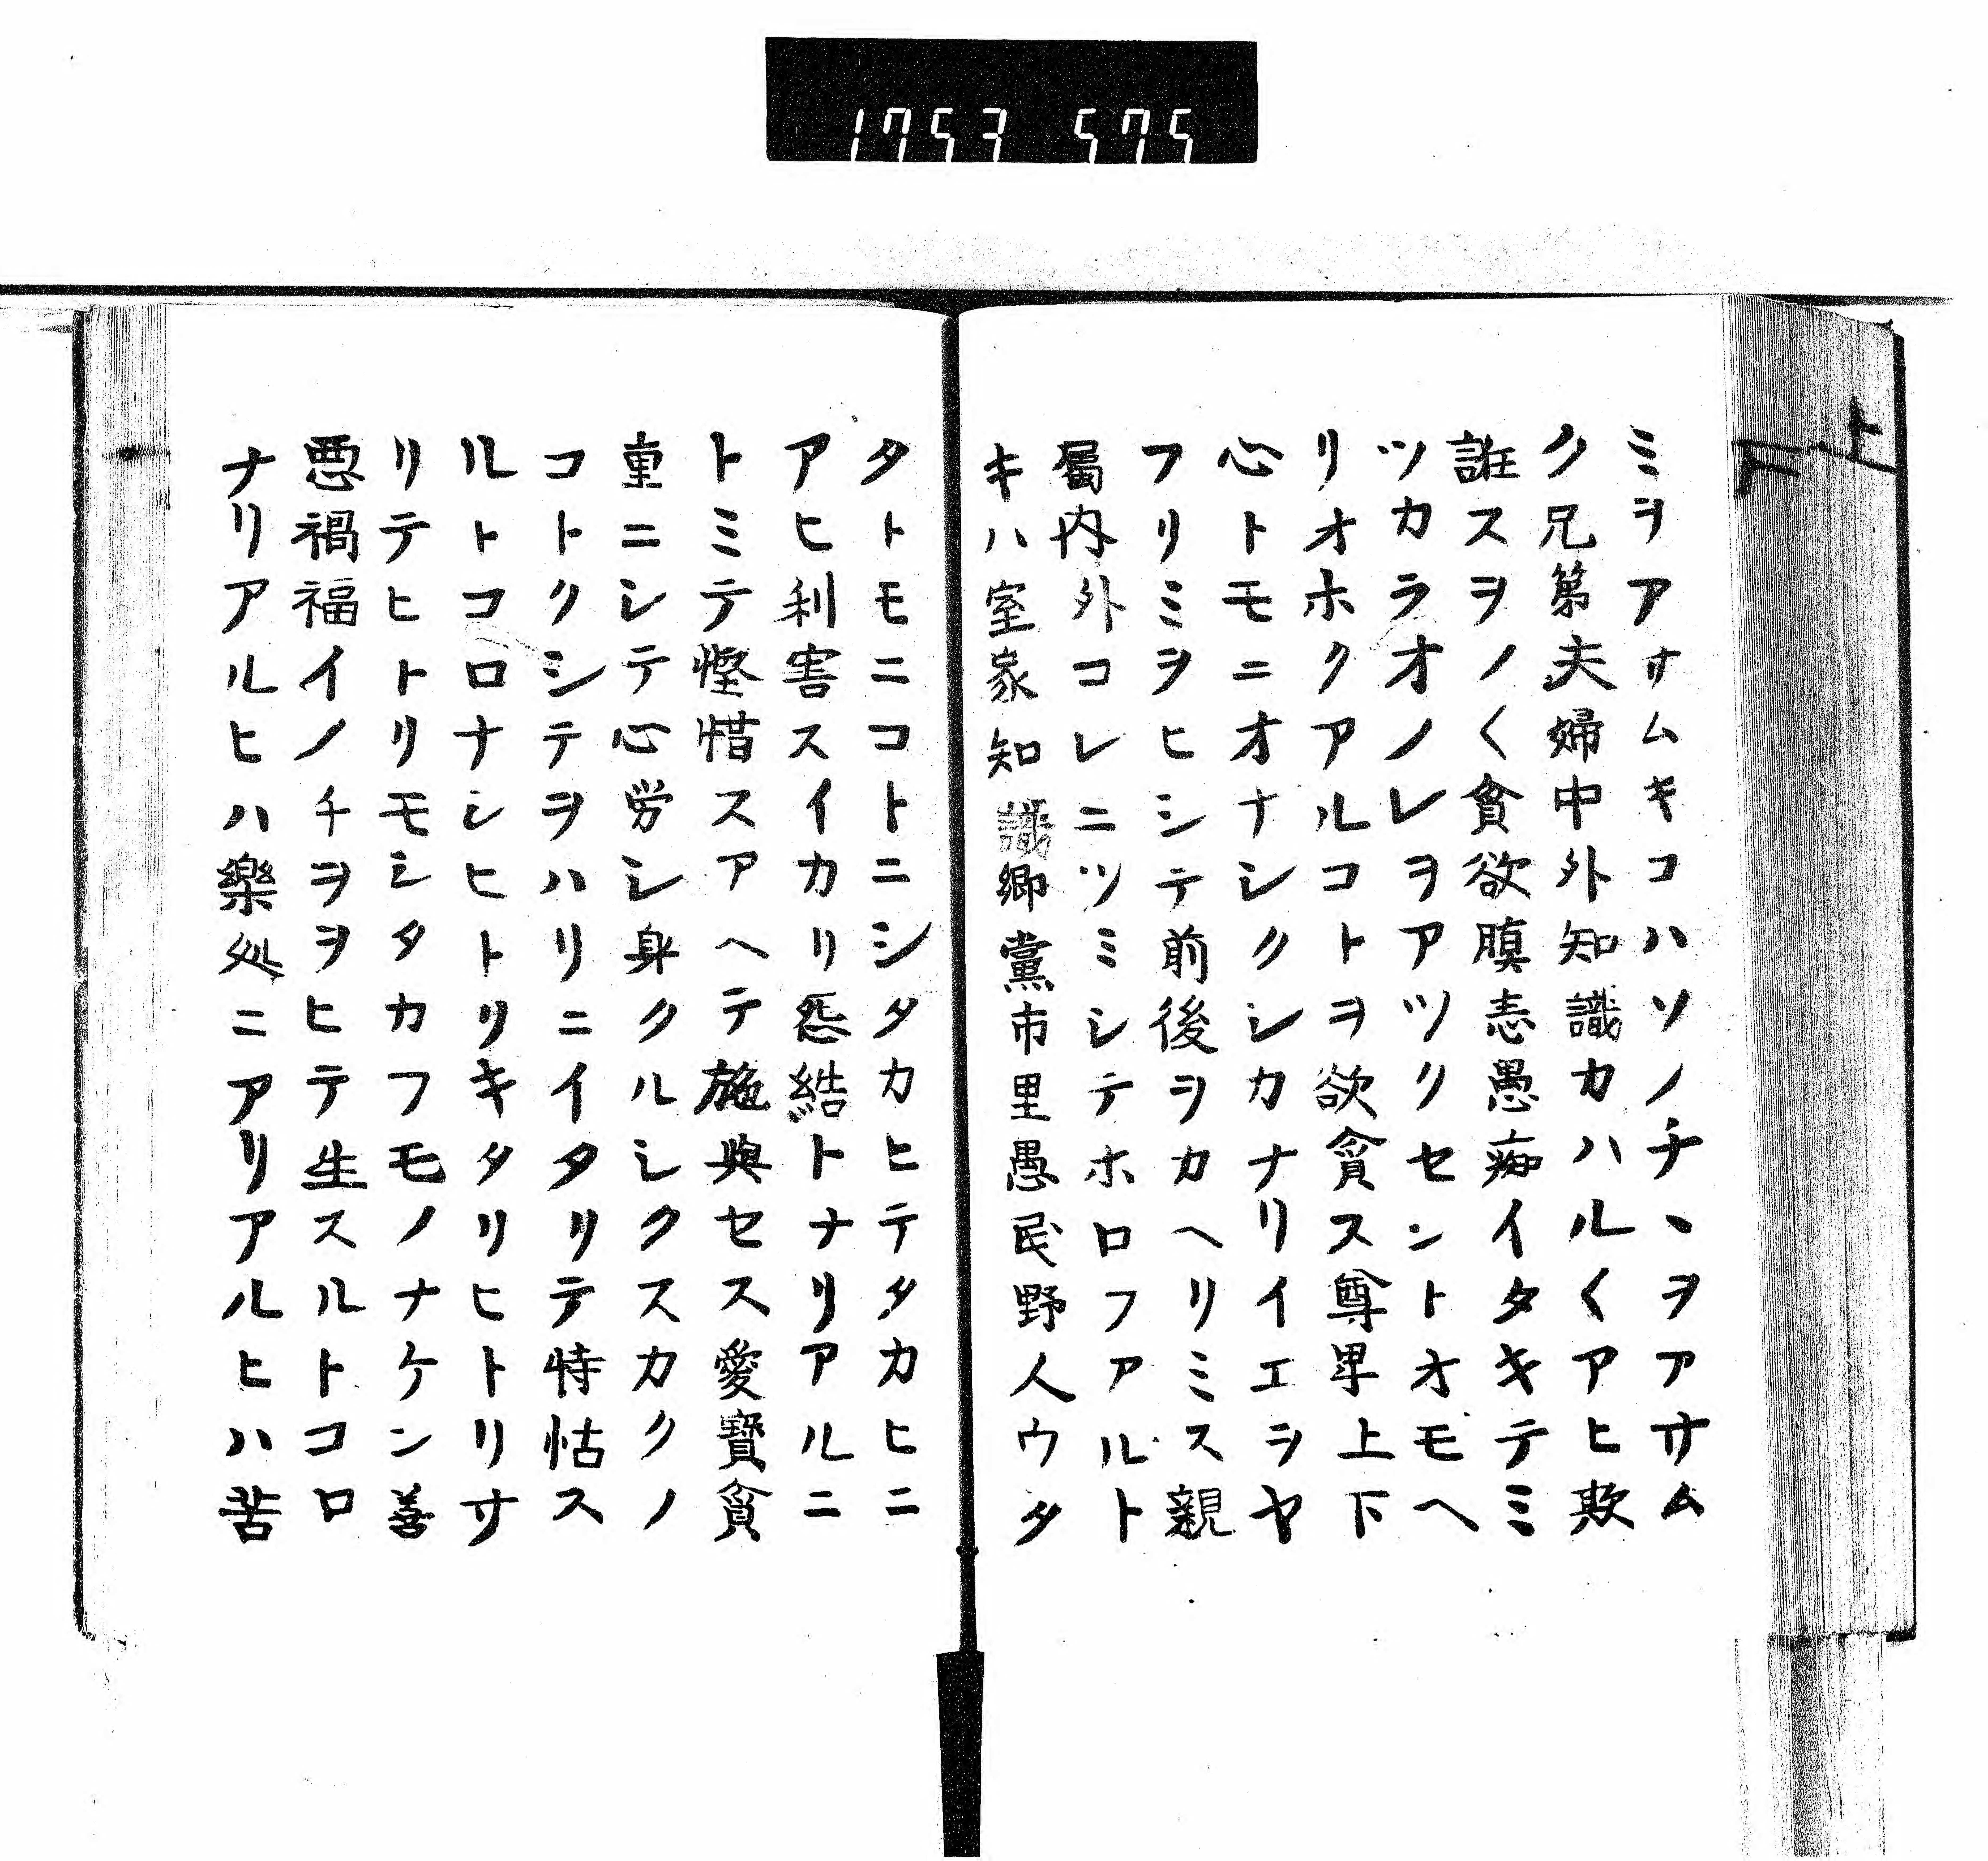 1753 575
上下
ミヲアサムキコハソノチヽヲアサム
ク兄第夫婦中外知識カハル〱アヒ欺
誑スヲノ〱貪欲瞋恚愚痴イタキテミ
ツカラオノレヲアツクセントオモヘ
リオホクアルコトヲ欲貪ス尊卑上下
心トモニオナシクシカナリイエヲヤ
フリミヲヒシテ前後ヲカヘリミス親
属内外コレニツミシテホロフアルト
キハ室家知識郷黨市里愚民野人ウタ
タトモニコトニシタカヒテタカヒニ
アヒ利害スイカリ怨結トナリアルニ
トミテ慳惜スアヘテ施與セス愛寳貪
重ニシテ心労シ身クルシクスカクノ
コトクシテヲハリニイタリテ恃怙ス
ルトコロナシヒトリキタリヒトリサ
リテヒトリモシタカフモノナケン善
悪禍福イノチヲヲヒテ生スルトコロ
ナリアルヒハ樂処ニアリアルヒハ苦